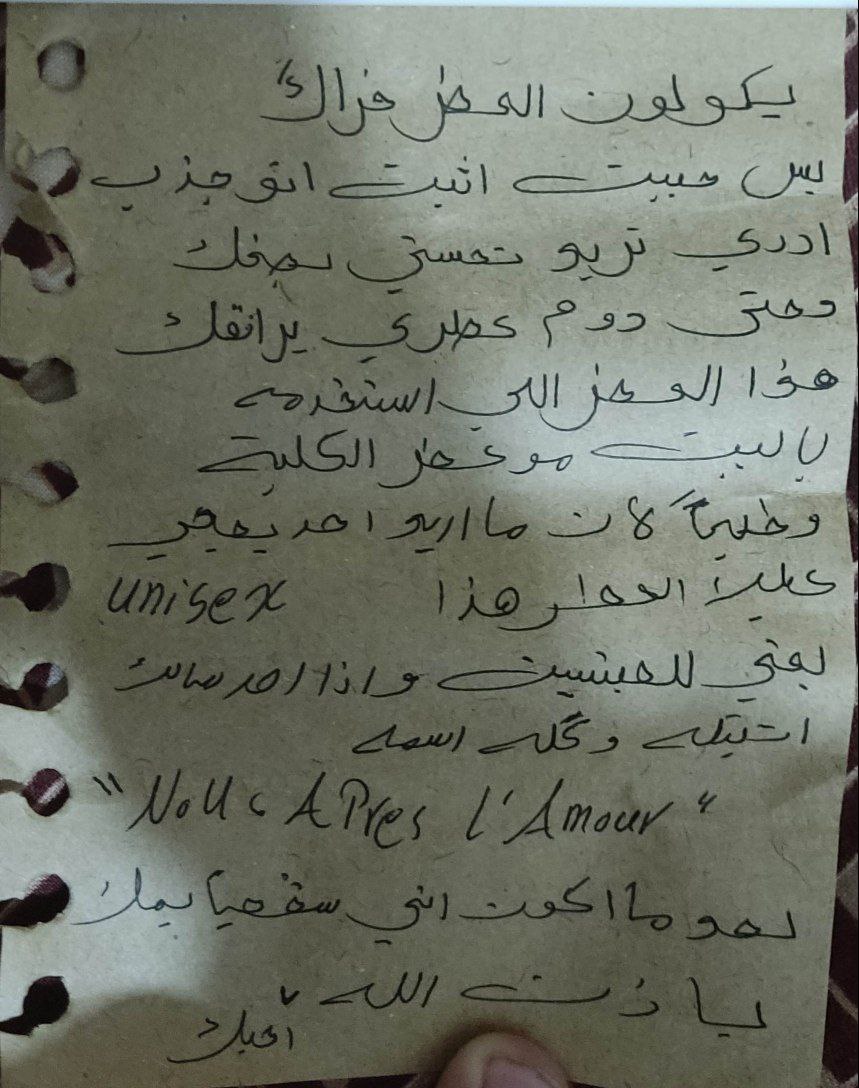 يكولون العطر فراك
بس حبيت اثبت انو جذب
ادري تريد تحسني بصفك
وحتى دوم عطري يرافقك
هذا العطر اللي استخدمه
ياليت مو عطر الكلية
وطبعاً لان ما اريد احد يحجي
عليك العطر هذا unisex
يعني للجنسين واذا احد سالك
انتي گله اسمه
"Nous APres l'Amour"
بعد ما اكون اني سقفيا يمك
باذن الله
أحبك